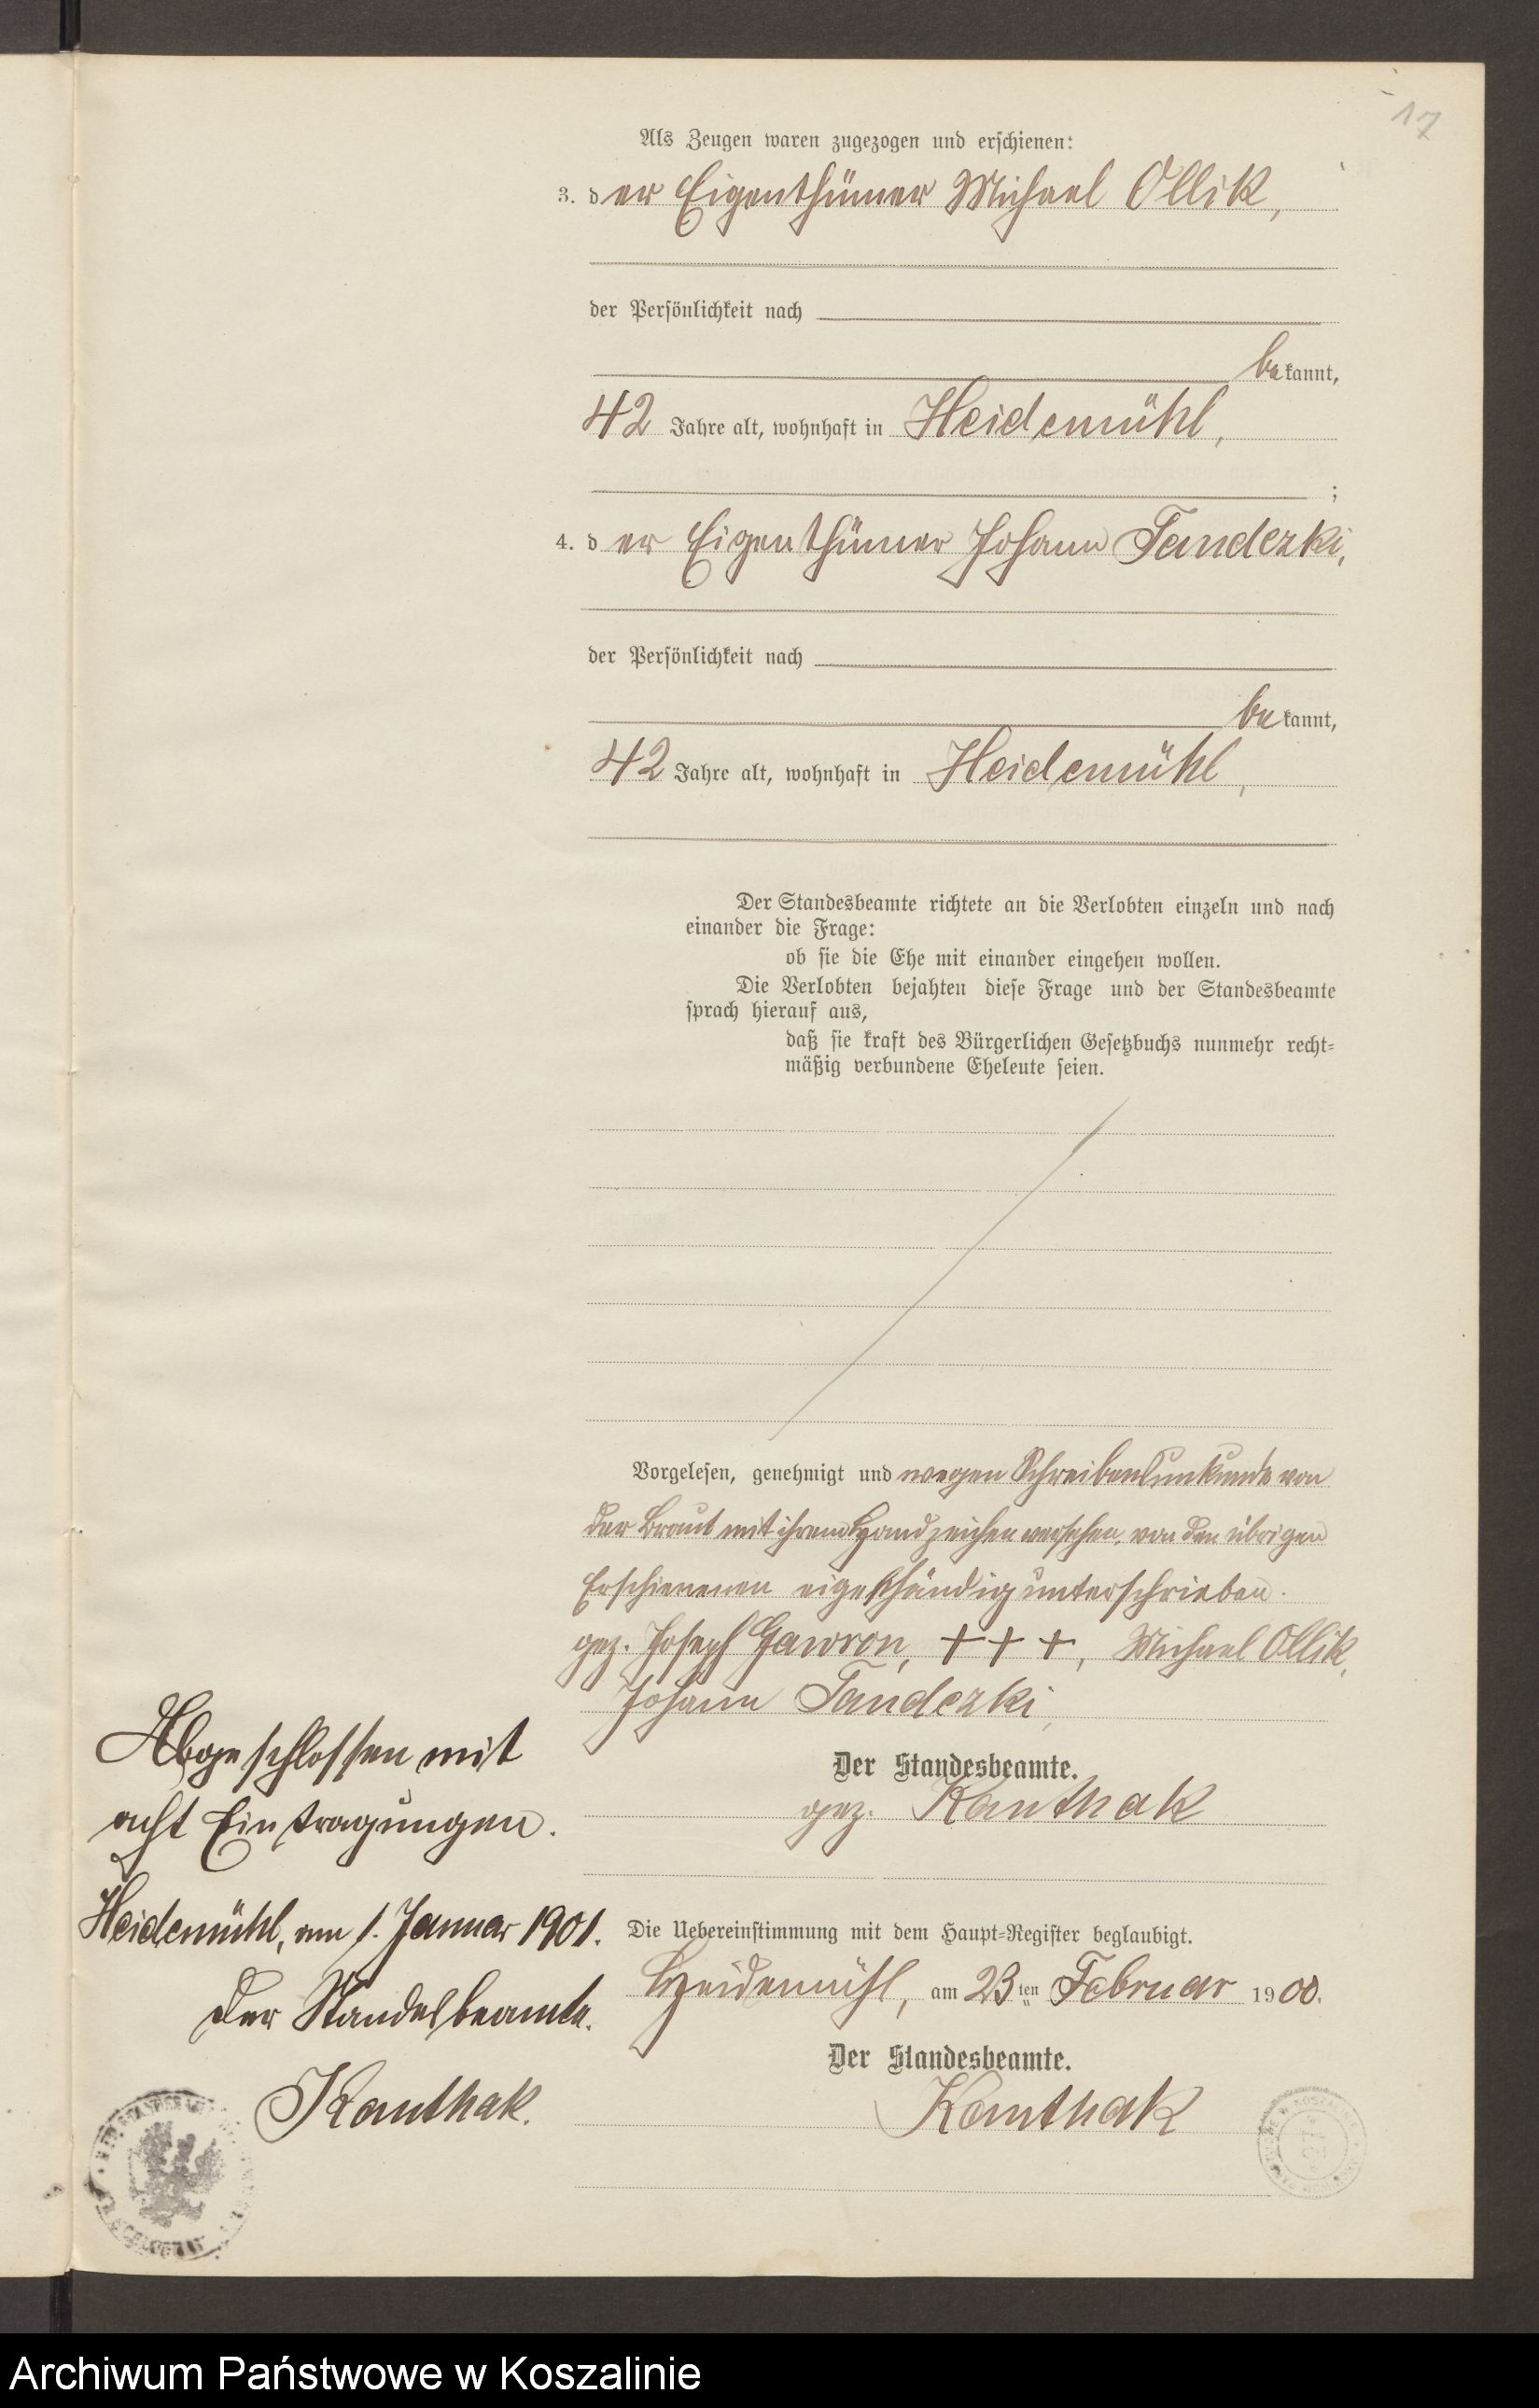 17
Als Zeugen waren zugezogen und erschienen:
3. der Eigenthümer Michael Ollik,
der Persönlichkeit nach
bekannt,
42 Jahre alt, wohnhaft in Heidemühl,
;
4. der Eigenthümer Johann Tandezki,
der Persönlichkeit nach
bekannt,
42 Jahre alt, wohnhaft in Heidemühl,
Der Standesbeamte richtete an die Verlobten einzeln und nach
einander die Frage:
ob sie die Ehe mit einander eingehen wollen.
Die Verlobten bejahten diese Frage und der Standesbeamte
sprach hierauf aus,
daß sie kraft des Bürgerlichen Gesetzbuchs nunmehr recht=
mäßig verbundene Eheleute seien.
Vorgelesen, genehmigt und wegen Schreibensunkunde von
der Braut mit ihrem Handzeichen versehen, von den übrigen
Erschienenen eigenhändig unterschrieben.
gez. Joseph Gawron, + + +, Michael Ollik,
Johann Tandezki,
Der Standesbeamte.
gez. Kanthak
Abgeschlossen mit
acht Eintragungen.
Heidemühl, am 1. Januar 1901.
Der Standesbeamte.
Kanthak.
Die Uebereinstimmung mit dem Haupt=Register beglaubigt.
Heidemühl, am 23ten Februar 1900.
Der Standesbeamte.
Kanthak
Archiwum Państwowe w Koszalinie